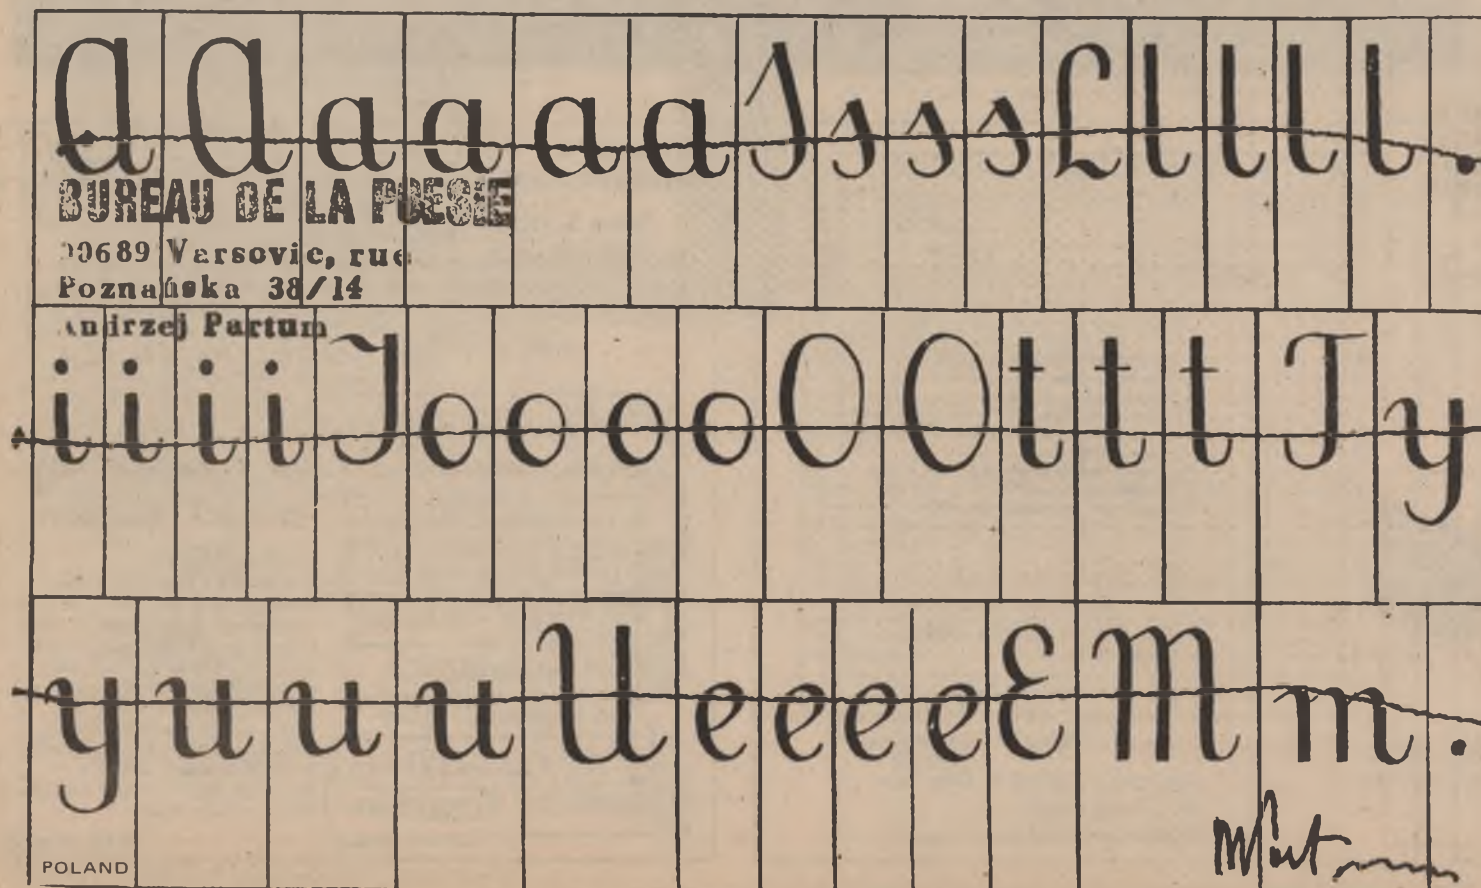 A A a a a a S s s s L l l l l .
BUREAU DE LA POESIE
00689 Varsovie, rue
Poznańska 38/14
Andrzej Partum
i i i i J o o o o O O t t t T y
y u u u U e e e e E M m .
POLAND